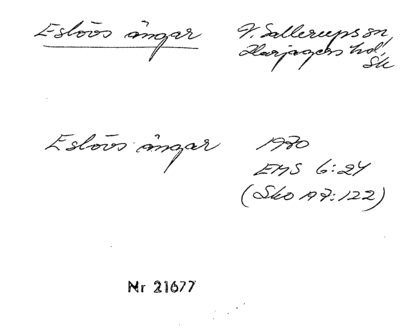 Eslövs ängar V. Sallerups sn,
Harjagers hd,
Sk
Eslövs ängar 1970
EMS 6:24
(Sko A7:122)
Nr 21677